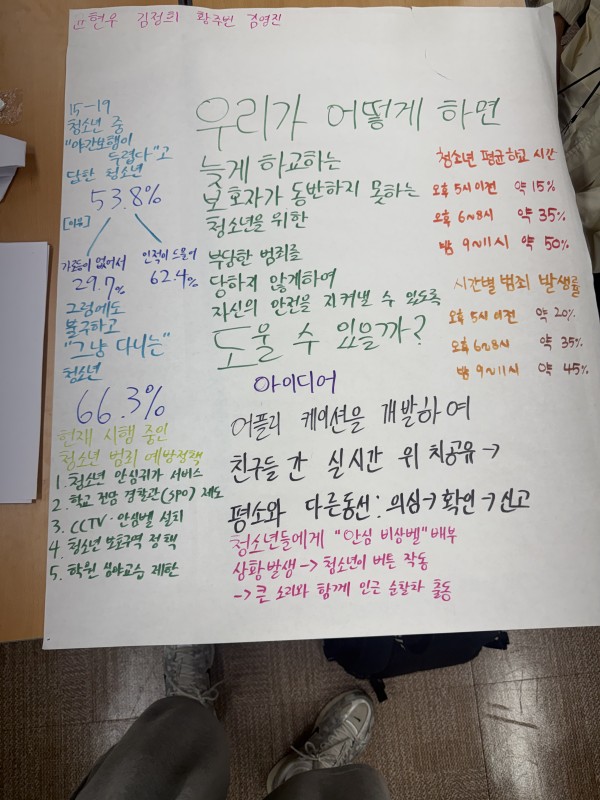 윤현우 김정희 황주빈 김영진
15-19
청소년 중
"야간보행이
두렵다"고
답한 청소년
53.8%
[이유]
가로등이 없어서
29.7%
인적이 드물어
62.4%
그럼에도
불구하고
"그냥 다니는"
청소년
66.3%
현재 시행 중인
청소년 범죄 예방정책
1. 청소년 안심귀가 서비스
2. 학교 전담 경찰관(SPO) 제도
3. CCTV·안심벨 설치
4. 청소년 보호구역 정책
5. 학원 심야교습 제한
우리가 어떻게 하면
늦게 하교하는
보호자가 동반하지 못하는
청소년을 위한
부당한 범죄를
당하지 않게하여
자신의 안전을 지켜낼 수 있도록
도울 수 있을까?
아이디어
어플리 케이션을 개발하여
친구들 간 실시간 위치공유→
평소와 다른동선: 의심→확인→신고
청소년들에게 "안심 비상벨" 배부
상황발생→청소년이 버튼 작동
→큰 소리와 함께 인근 순찰차 출동
청소년 평균하교 시간
오후 5시이전 약 15%
오후 6~8시 약 35%
밤 9~11시 약 50%
시간별 범죄 발생률
오후 5시 이전 약 20%
오후 6~8시 약 35%
밤 9~11시 약 45%